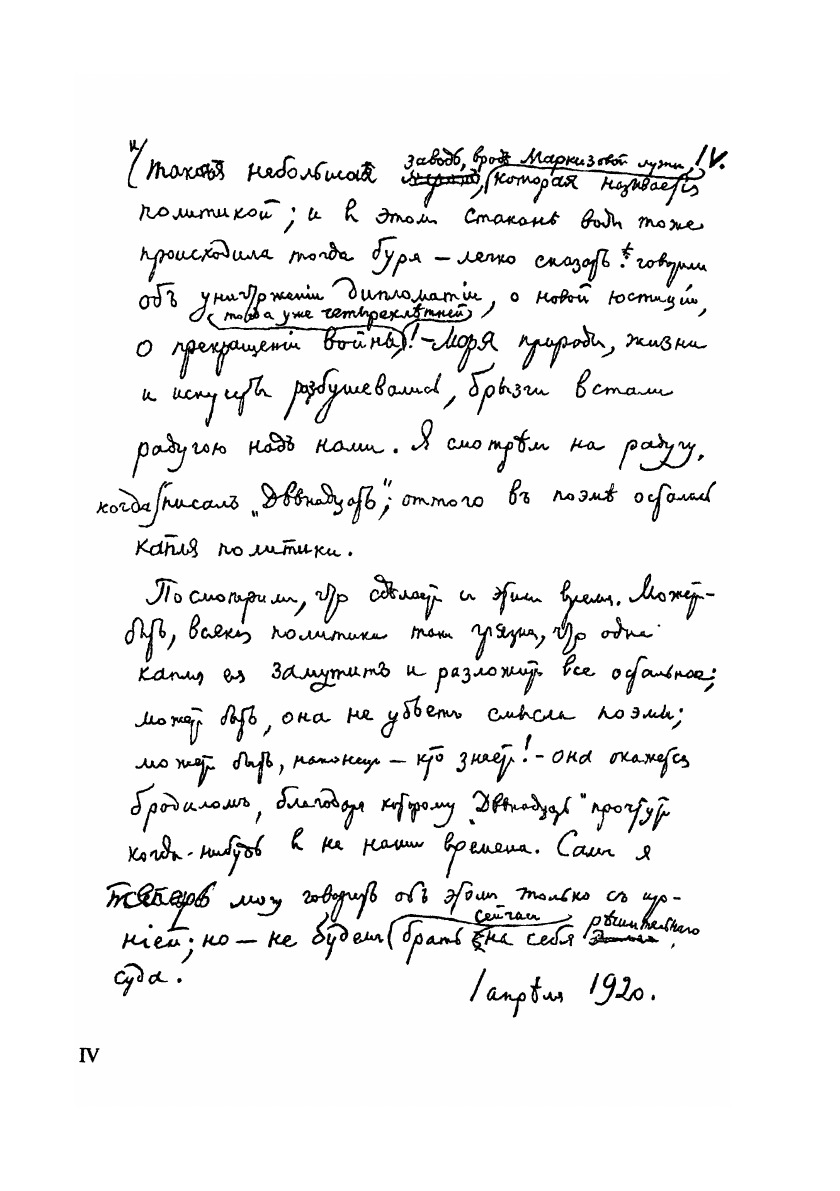 IV.
заводь, вродѣ Маркизовой лужи,
(такая небольшая которая называется
политикой; и въ этомъ стаканѣ воды тоже
происходила тогда буря – легко сказать: говорили
объ уничтоженіи дипломатіи, о новой юстиціи,
(тогда уже четырехлѣтней)
о прекращеніи войны! – Моря природы, жизни
и искусства разбушевались, брызги встали
радугою надъ нами. Я смотрѣлъ на радугу,
когда писалъ „Двѣнадцать"; оттого въ поэмѣ осталась
капля политики.
Посмотримъ, что сдѣлаетъ съ этимъ время. Можетъ-
быть, всякая политика такъ грязна, что одна
капля ея замутитъ и разложитъ все остальное;
можетъ быть, она не убьетъ смысла поэмы;
можетъ быть, наконецъ – кто знаетъ! – она окажется
бродиломъ, благодаря которому „Двѣнадцать" прочтутъ
когда-нибудь въ не наши времена. Самъ я
теперь могу говорить объ этомъ только съ иро-
ніей; но – не будемъ брать на себя
сейчасъ рѣшительнаго
суда.
1 апрѣля 1920.
IV